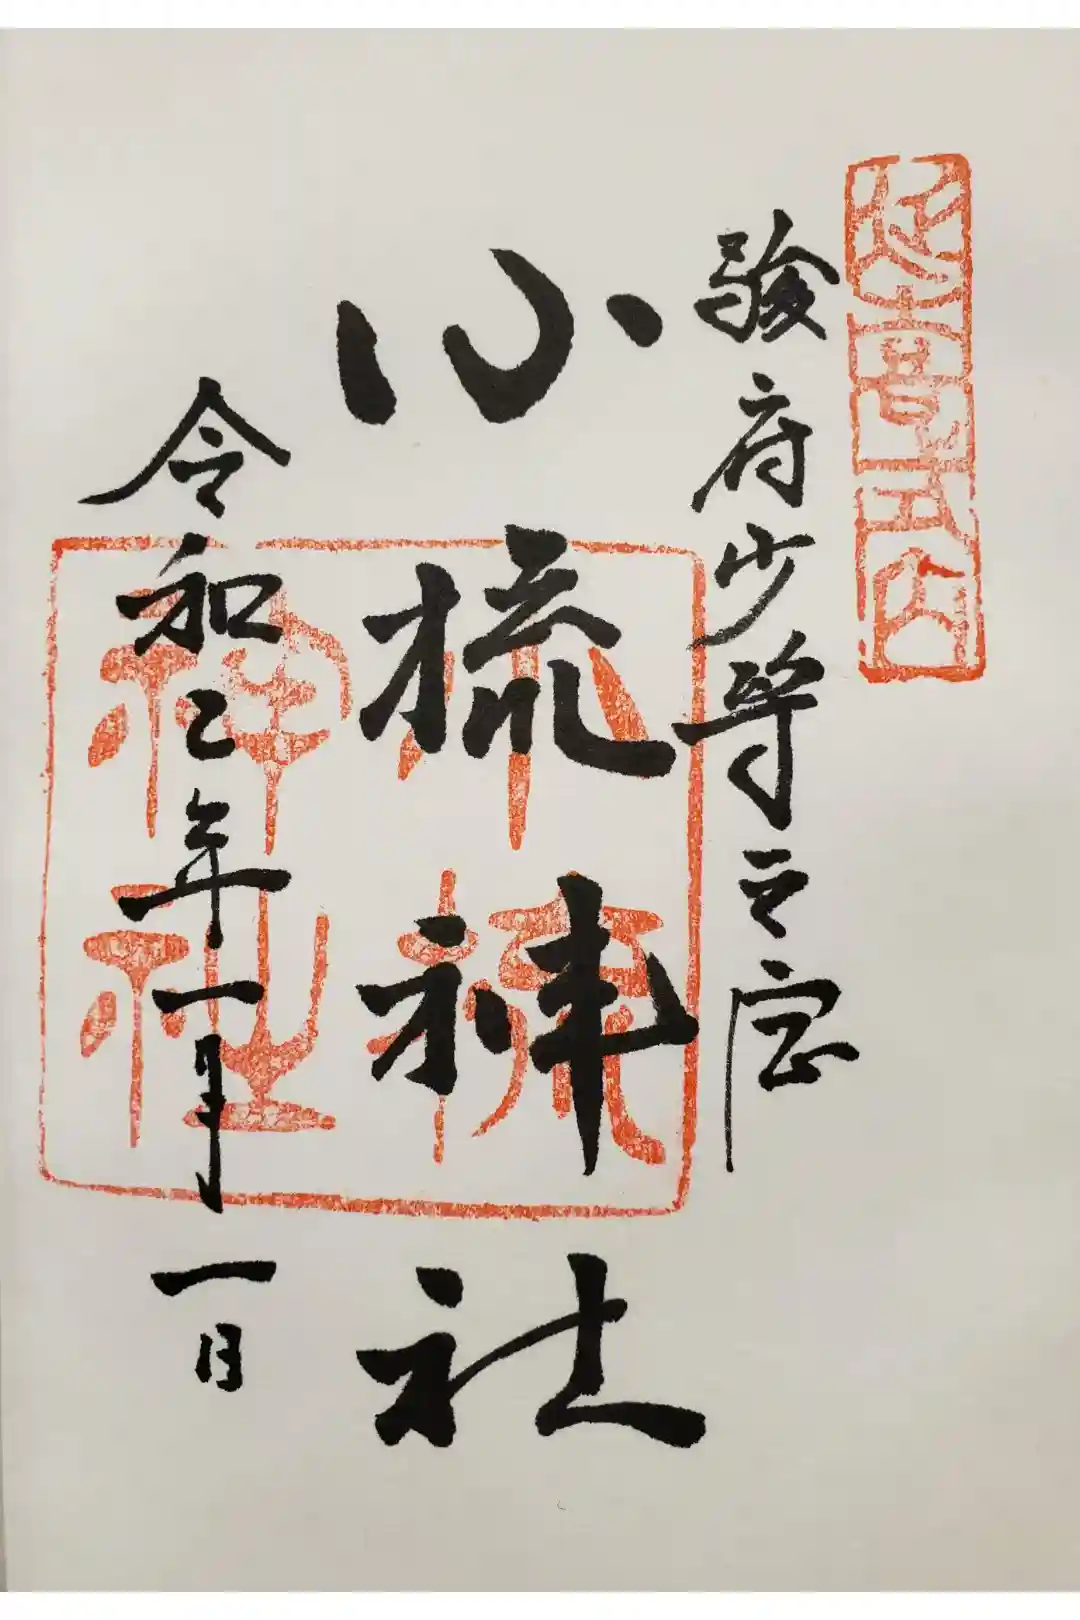 延喜式内
駿府少将之宮
小梳神社
小梳神社
令和二年一月一日